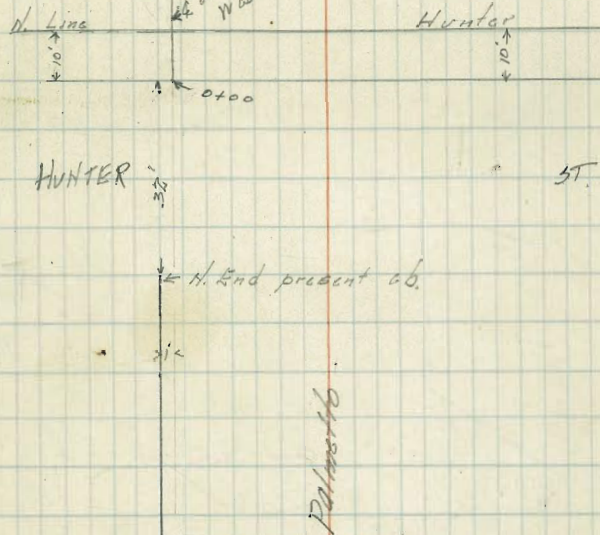 N. Line
Hunter
10'
10'
0+00
HUNTER
ST.
32'
N. End present cb.
1'
Palmetto